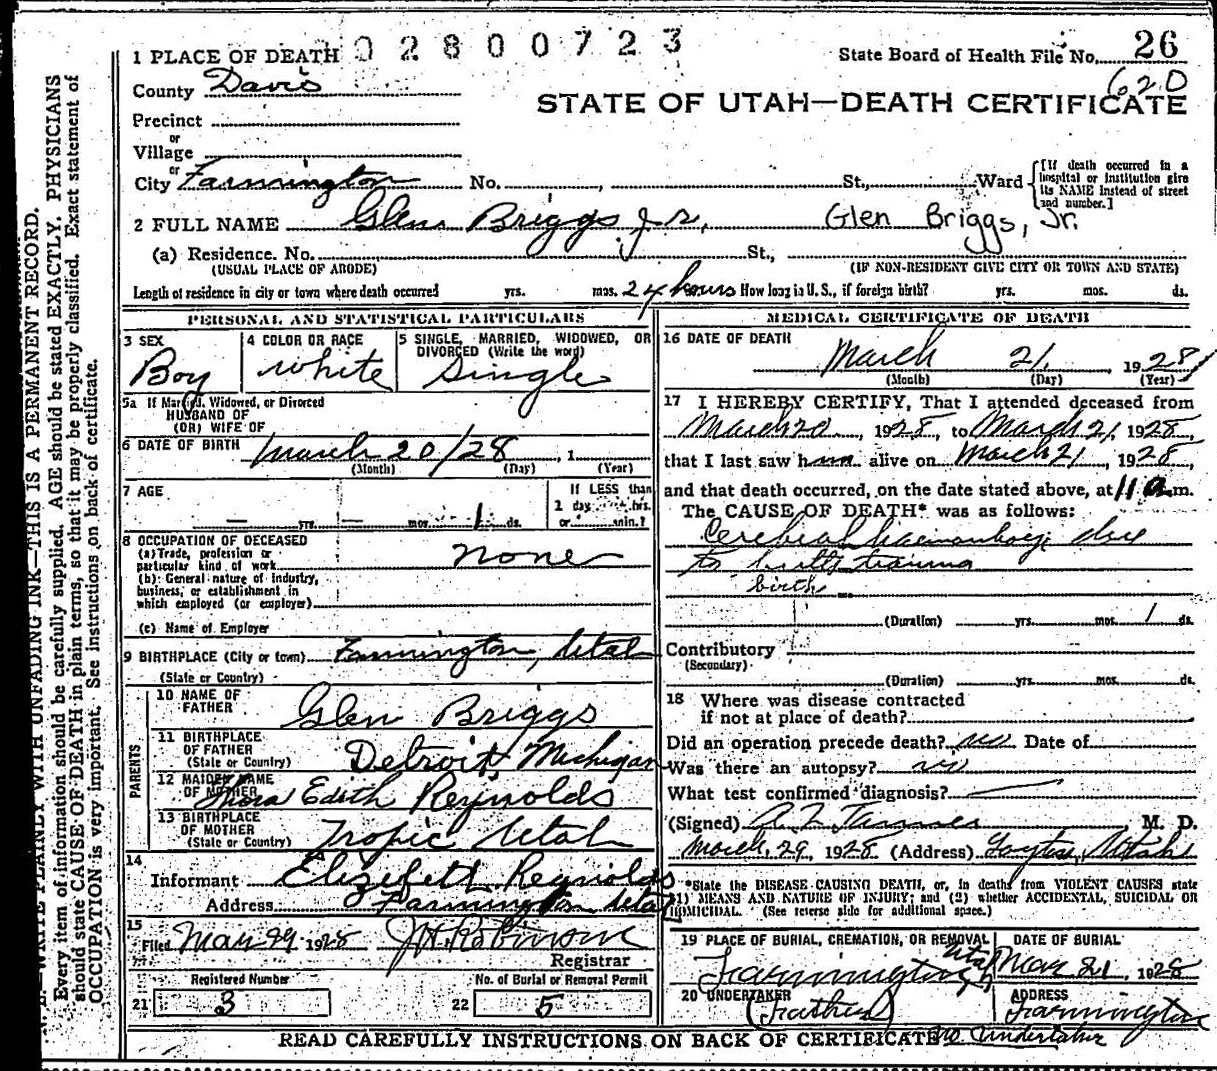 1 PLACE OF DEATH 02800723
State Board of Health File No. 26
620
County Davis
STATE OF UTAH—DEATH CERTIFICATE
Precinct
or
Village
or
City Farmington No. , St., Ward
[If death occurred in a hospital or institution give its NAME instead of street and number.]
2 FULL NAME Glen Briggs Jr, Glen Briggs, Jr.
(a) Residence. No. St.,
(USUAL PLACE OF ABODE) (IF NON-RESIDENT GIVE CITY OR TOWN AND STATE)
Length of residence in city or town where death occurred yrs. mos. 24 hours How long in U. S., if foreign birth? yrs. mos. ds.
PERSONAL AND STATISTICAL PARTICULARS
3 SEX
Boy
4 COLOR OR RACE
white
5 SINGLE, MARRIED, WIDOWED, OR DIVORCED (Write the word)
Single
5a If Married, Widowed, or Divorced
HUSBAND OF
(OR) WIFE OF
6 DATE OF BIRTH March 20/28, 1
(Month) (Day) (Year)
7 AGE
— yrs. — mos. 1 ds.
If LESS than
1 day hrs.
or min.?
8 OCCUPATION OF DECEASED
(a) Trade, profession or
particular kind of work none
(b) General nature of industry,
business, or establishment in
which employed (or employer)
(c) Name of Employer
9 BIRTHPLACE (City or town) Farmington, Utah
(State or Country)
PARENTS
10 NAME OF
FATHER Glen Briggs
11 BIRTHPLACE
OF FATHER
(State or Country) Detroit Michigan
12 MAIDEN NAME
OF MOTHER Thora Edith Reynolds
13 BIRTHPLACE
OF MOTHER
(State or Country) Tropic Utah
14
Informant Elizebeth Reynolds
Address Farmington Utah
15
Filed Mar 29 1928 J H Robinson
Registrar
Registered Number
21 3
No. of Burial or Removal Permit
22 5
MEDICAL CERTIFICATE OF DEATH
16 DATE OF DEATH
March 21, 1928
(Month) (Day) (Year)
17 I HEREBY CERTIFY, That I attended deceased from
March 20, 1928, to March 21, 1928,
that I last saw him alive on March 21, 1928,
and that death occurred, on the date stated above, at 11 a.m.
The CAUSE OF DEATH* was as follows:
Cerebral haemorrhage due
to birth trauma
birth
(Duration) yrs. mos. 1 ds.
Contributory
(Secondary)
(Duration) yrs. mos. ds.
18 Where was disease contracted
if not at place of death?
Did an operation precede death? no Date of
Was there an autopsy? no
What test confirmed diagnosis? —
(Signed) A Z Tanner M. D.
March, 29, 1928 (Address) Layton, Utah
*State the DISEASE CAUSING DEATH, or, in deaths from VIOLENT CAUSES state
(1) MEANS AND NATURE OF INJURY; and (2) whether ACCIDENTAL, SUICIDAL OR
HOMICIDAL. (See reverse side for additional space.)
19 PLACE OF BURIAL, CREMATION, OR REMOVAL
Farmington, Utah
DATE OF BURIAL
Mar 21, 1928
20 UNDERTAKER
(Father)
ADDRESS
Farmington
no Undertaker
READ CAREFULLY INSTRUCTIONS ON BACK OF CERTIFICATE
N. B.—WRITE PLAINLY WITH UNFADING INK—THIS IS A PERMANENT RECORD.
Every item of information should be carefully supplied. AGE should be stated EXACTLY. PHYSICIANS
should state CAUSE OF DEATH in plain terms, so that it may be properly classified. Exact statement of
OCCUPATION is very important. See instructions on back of certificate.